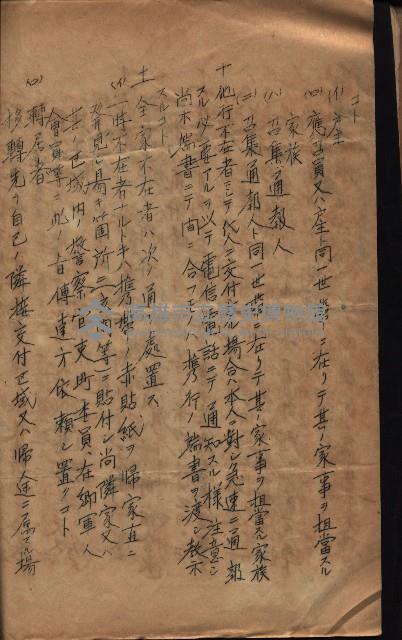 コト
(イ) 戸主
(ロ) 應召員又ハ戸主ト同一世帯ニ在リテ其ノ家事ヲ担當スル
家族
(ハ) 召集通報人
(ニ) 召集通報人ト同一世帯ニ在リテ其ノ家事ヲ担當スル家族
十 他行不在者ニシテ代人ニ交付スル場合ハ本人ニ對シ急速ニ通報
スル必要アルヲ以テ電信電話ニテ通知スル様注意シ
尚木端書ニテ間ニ合フモノハ携行ノ端書ヲ渡シ教示
スルコト
十一 全家不在者ハ次ノ通処置ス
(イ) 一時不在者ナルトキハ携帯ノ赤貼紙ヲ帰家直ニ
発見シ易キ箇所(戸等)ニ貼付シ尚隣家又ハ
其ノ区域内ノ警察官吏町委員、在郷軍人
會員等ニ此ノ旨傳達方依頼シ置クコト
(ロ) 轉居者
移轉先ヵ自己ノ隣接交付区域又ハ帰途ニ属スル場
高雄市立歷史博物館